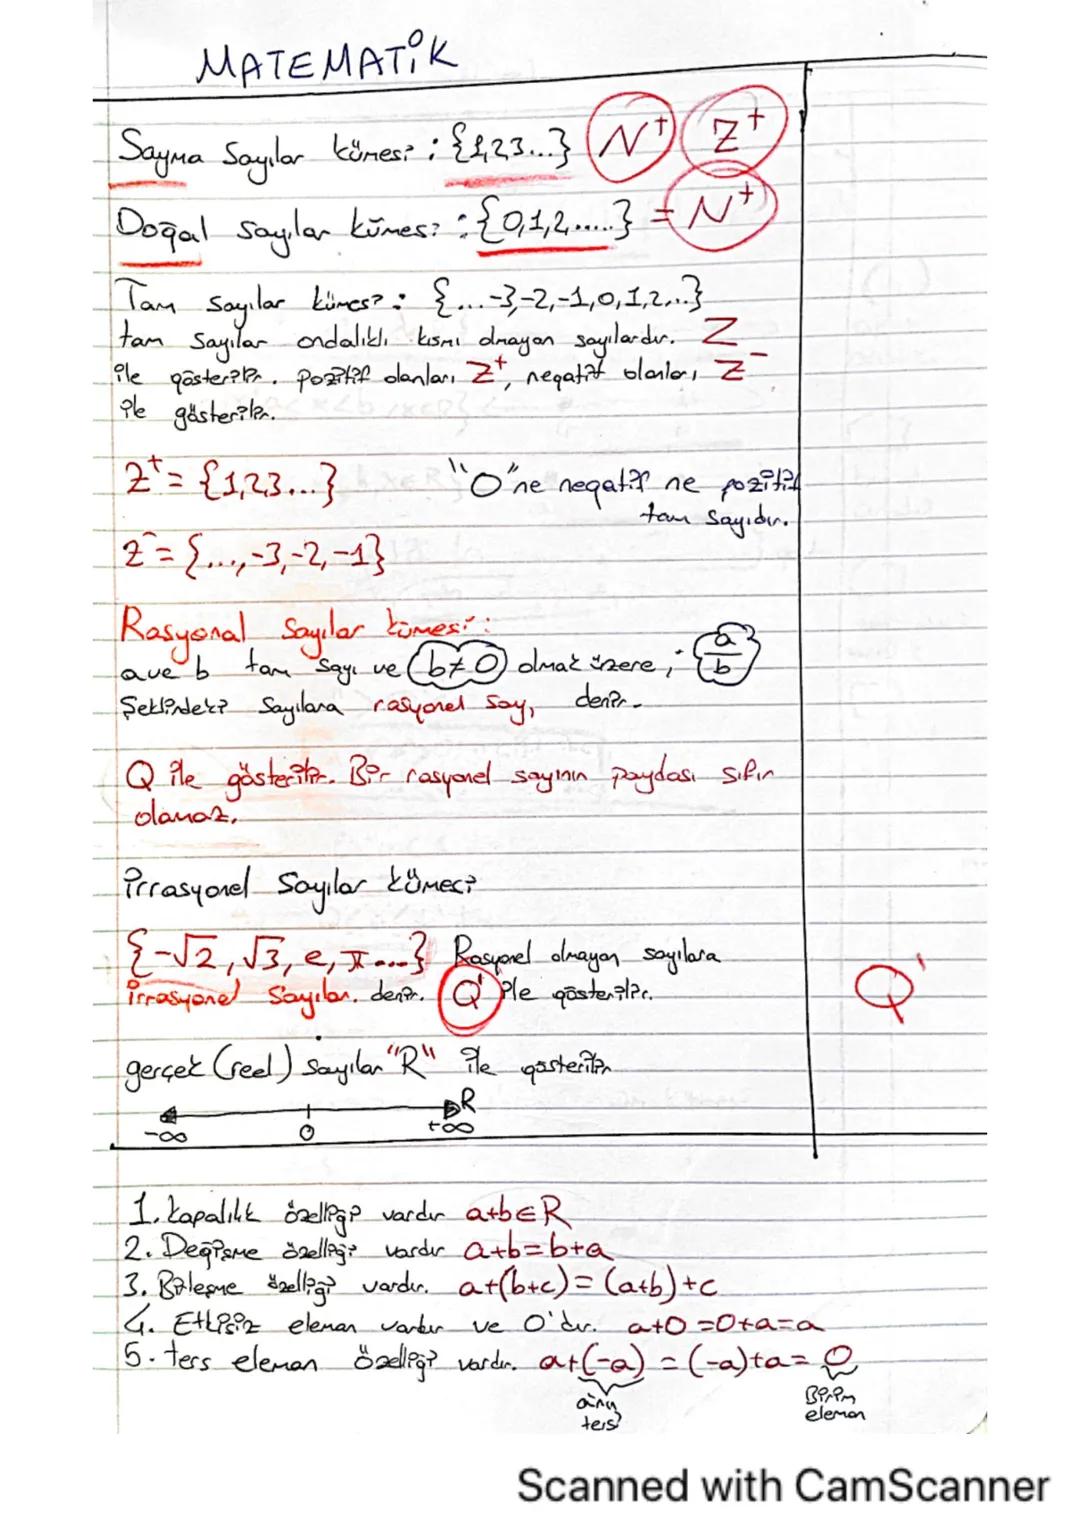 MATEMATİK
Sayma Sayılar kümesi : {1,2,3...} N⁺ Z⁺
Doğal sayılar kümesi : {0,1,2.....} = N⁺
Tam sayılar kümesi : {...-3,-2,-1,0,1,2,...}
tam sayılar ondalıklı kısmı olmayan sayılardır. Z
ile gösterilir. pozitif olanları Z⁺, negatif olanları Z⁻
ile gösterilir.
Z⁺ = {1,2,3...} "0" ne negatif ne pozitif
tam sayıdır.
Z⁻ = {...,-3,-2,-1}
Rasyonal Sayılar kümesi :
a ve b tam sayı ve b≠0 olmak üzere ; a/b
Şeklindeki sayılara rasyonel sayı denir.
Q ile gösterilir. Bir rasyonel sayının paydası sıfır
olamaz.
irrasyonel Sayılar kümeci
{-√2, √3, e, π...} Rasyonel olmayan sayılara
irrasyonel Sayılar denir. Q' ile gösterilir.
Q'
gerçek (reel) sayılar "R" ile gösterilir
R
-∞ 0 +∞
1. kapalılık özelliği vardır a+b∈R
2. Değişme özelliği vardır a+b=b+a
3. Birleşme özelliği vardır. a+(b+c)=(a+b)+c
4. Etkisiz eleman vardır ve 0'dır. a+0=0+a=a
5. ters eleman özelliği vardır. a+(-a)=(-a)+a=0
ters
Birim
eleman
Scanned with CamScanner